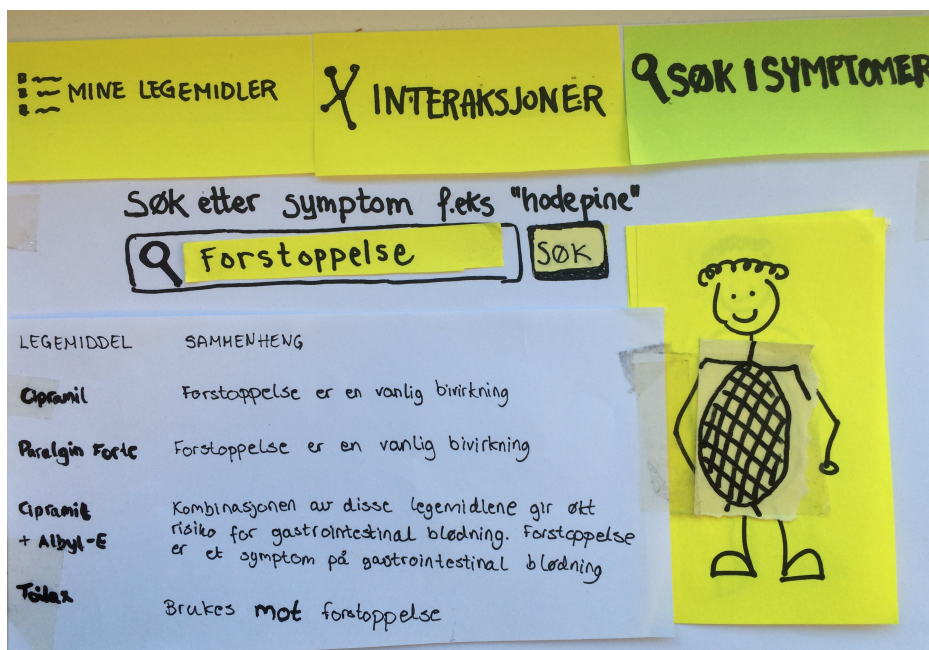 MINE LEGEMIDLER
INTERAKSJONER
SØK I SYMPTOMER
Søk etter symptom f.eks "hodepine"
Forstoppelse
SØK
LEGEMIDDEL SAMMENHENG
Cipramil Forstoppelse er en vanlig bivirkning
Paralgin Forte Forstoppelse er en vanlig bivirkning
Cipramil Kombinasjonen av disse legemidlene gir økt
+ Albyl-E risiko for gastrointestinal blødning. Forstoppelse
er et symptom på gastrointestinal blødning
Toilax Brukes mot forstoppelse